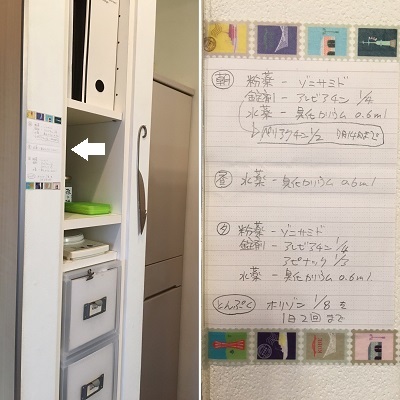 朝 粉薬 - ゾニサミド
錠剤 - アレビアチン 1/4
水薬 - 臭化カリウム 0.6ml
昼 水薬 - 臭化カリウム 0.6ml
夕 粉薬 - ゾニサミド
錠剤 - アレビアチン 1/4
アピナック 1/3
水薬 - 臭化カリウム 0.6ml
とんぷく ホリゾン 1/8を
1日2回まで